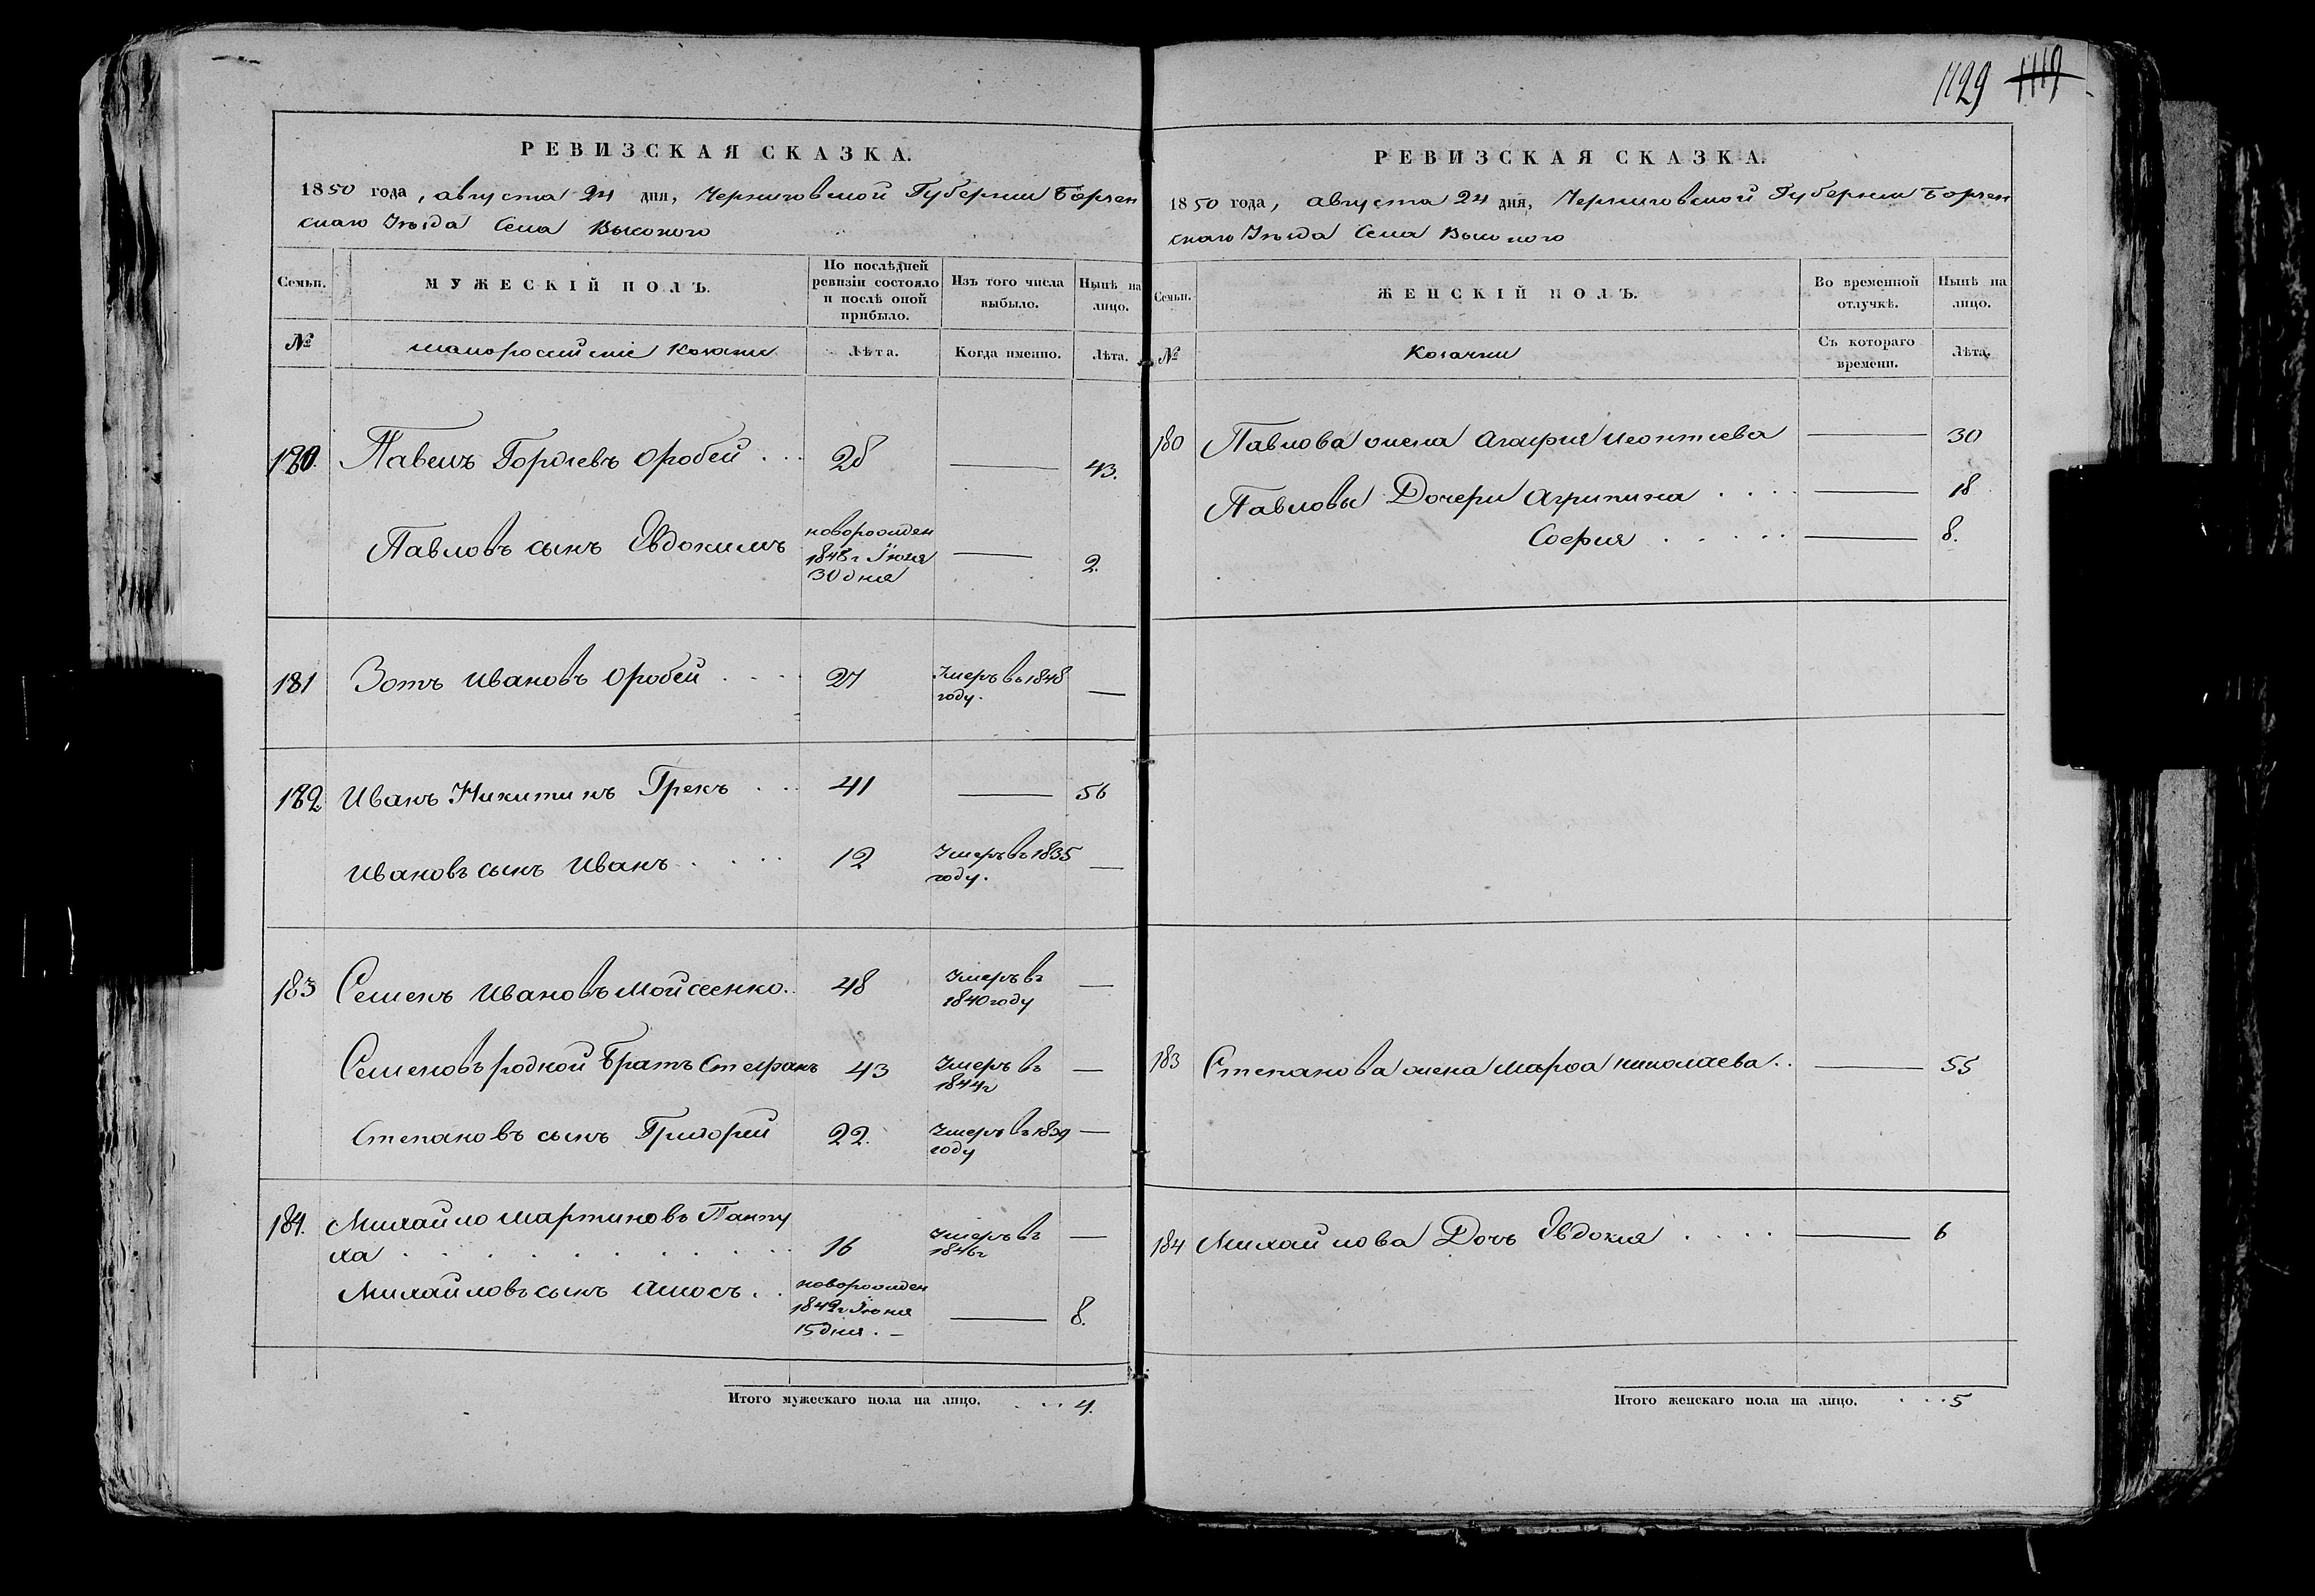 1129 1119
РЕВИЗСКАЯ СКАЗКА.
1850 года, августа 24 дня, Черниговской Губернии Борзен
скаго Уѣзда Села Высокого
Семьи.
МУЖЕСКІЙ ПОЛЪ.
По послѣдней
ревизіи состояло
и послѣ оной
прибыло.
Изъ того числа
выбыло.
Нынѣ на
лицо.
№
малороссийские Козаки
Лѣта.
Когда именно.
Лѣта.
180. Павелъ Гордіевъ Оробей . . . 28 — 43.
Павловъ сынъ Евдокимъ
новорожден
1848 г Іюля
30 дня
— 2.
181 Зотъ Ивановъ Оробей . . . . 27 Умеръ въ 1848
году. —
182 Иванъ Никитинъ Грекъ . . . 41 — 56
Ивановъ сынъ Иванъ . . . . 12 Умеръ въ 1835
году. —
183 Семенъ Ивановъ Мойсеенко . . 48 Умеръ въ
1840 году —
Семеновъ родной Братъ Стефанъ 43 Умеръ въ
1844 г —
Степановъ сынъ Григорий 22. Умеръ въ 1839
году —
184. Михайло Мартиновъ Панту
ха . . . . . . . . . . 16 Умеръ въ
1846 г —
Михайловъ сынъ Амосъ . .
новорожден
1842 г Іюня
15 дня. —
— 8.
Итого мужескаго пола на лицо. . . . 4.
РЕВИЗСКАЯ СКАЗКА.
1850 года, августа 24 дня, Черниговской Губернии Борзен
скаго Уѣзда Села Высокого
Семьи.
ЖЕНСКІЙ ПОЛЪ.
Во временной
отлучкѣ.
Нынѣ на
лицо.
№
Козачки
Съ котораго
времени.
Лѣта.
180 Павлова жена Агафия Леонтиева — 30
Павловы Дочери Агрипина . . . . — 18
София . . . . . — 8.
183 Степанова жена Марфа Николаева . . — 55
184 Михайлова Дочь Евдокия . . . . — 6
Итого женскаго пола на лицо. . . . 5